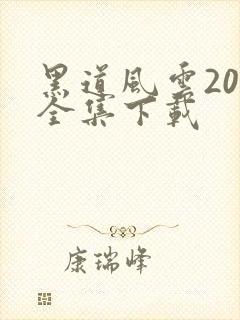 黑道风雲20
全集下載
康瑞峰